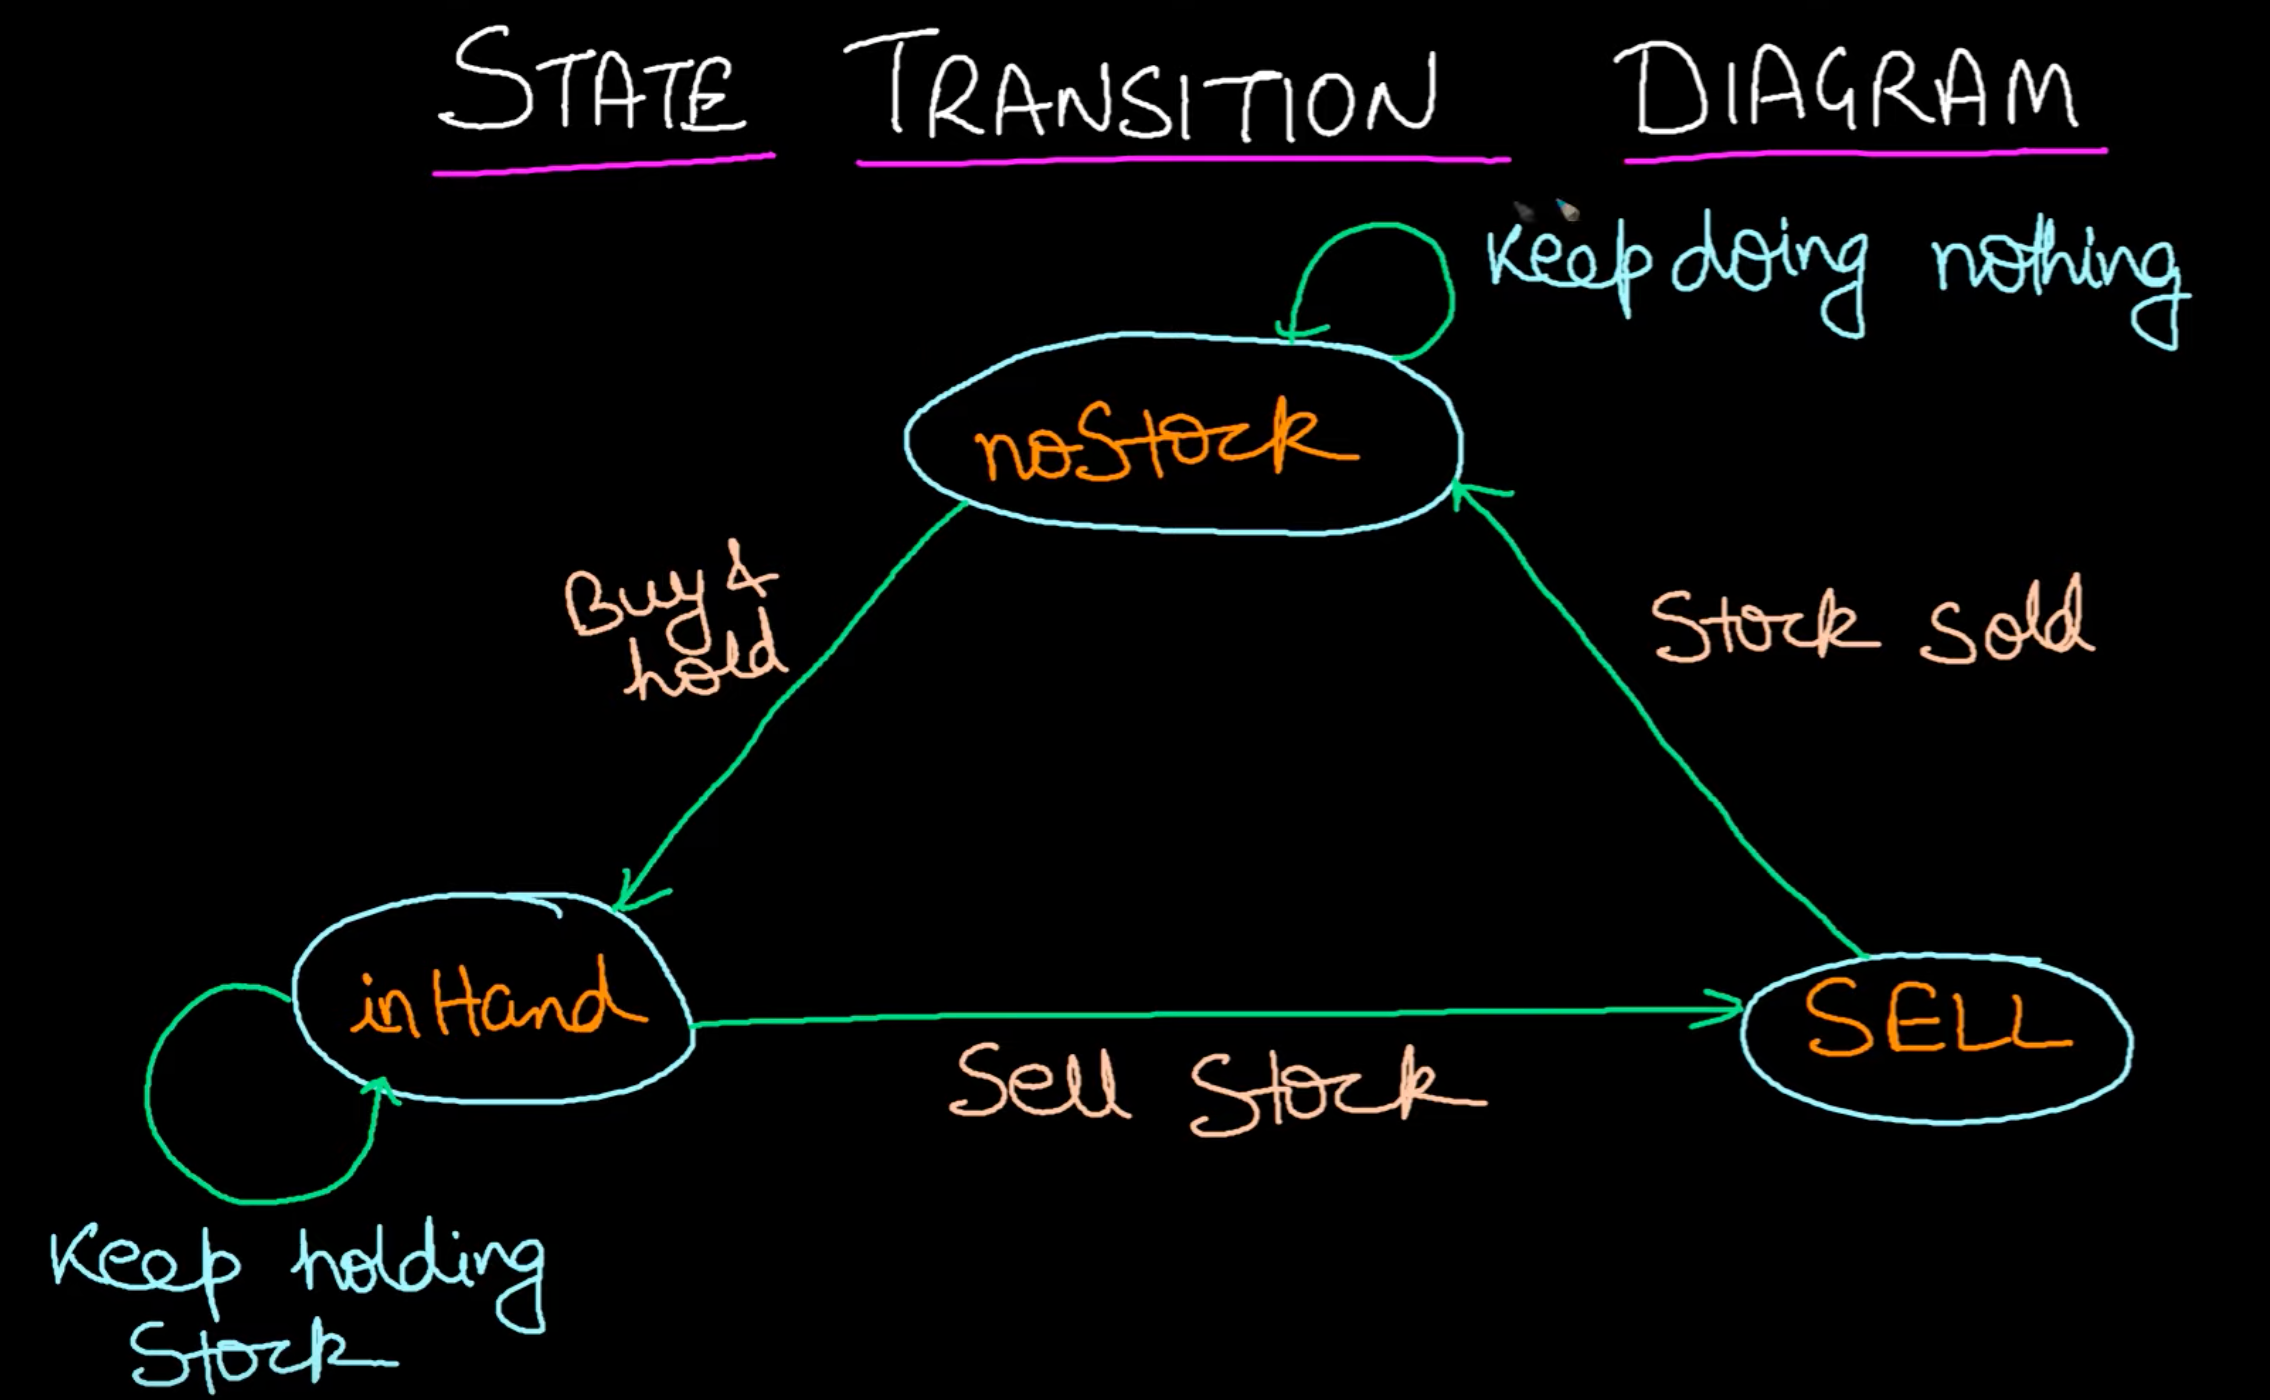 STATE TRANSITION DIAGRAM
Keep doing nothing
noStock
Buy &
hold
Stock Sold
inHand
SELL
Sell Stock
Keep holding
Stock